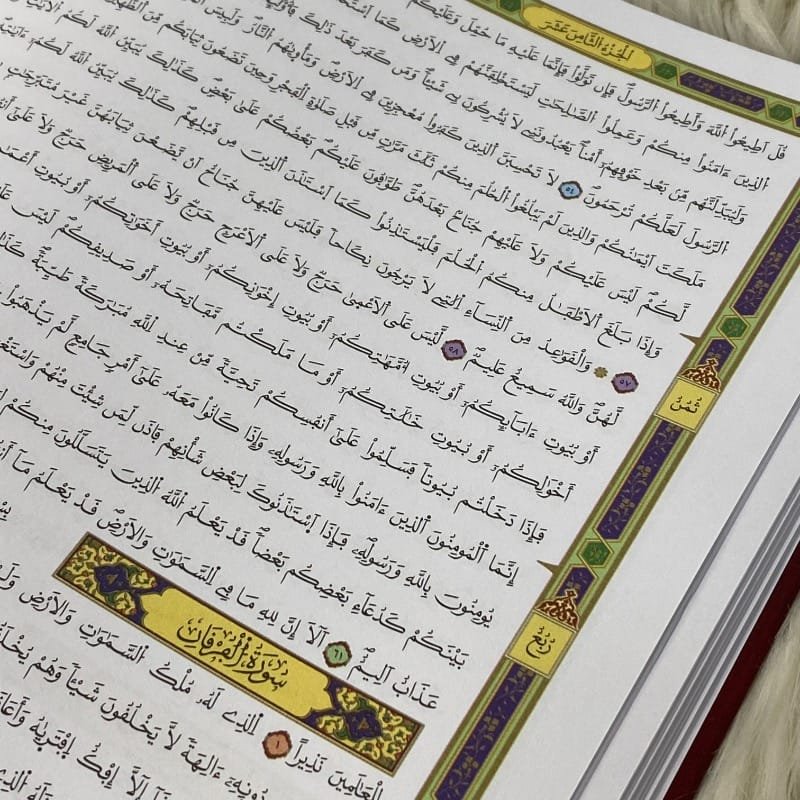 الجُزْءُ الثَّامِنَ عَشَرَ
قُلَ اَطِيعُواْ اُللَّهَ وَأَطِيعُواْ اُلرَّسُولَ فَإِن تَوَلَّوْاْ فَإِنَّمَا عَلَيْهِ مَا حُمِّلَ وَعَلَيْكُم
اَلذِينَ ءَامَنُواْ مِنكُمْ وَعَمِلُواْ اُلصَّٰلِحَٰتِ لَيَسْتَخْلِفَنَّهُمْ فِے اِلَارْضِ كَمَا
وَلَيُبَدِّلَنَّهُم مِّنۢ بَعْدِ خَوْفِهِمُۥٓ أَمْناٗ يَعْبُدُونَنِے لَا يُشْرِكُونَ بِے شَيْـٔاٗ وَمَن كَفَرَ بَعْدَ ذَٰلِكَ
اَلرَّسُولَ لَعَلَّكُمْ تُرْحَمُونَ ٥٤ لَا تَحْسِبَنَّ اَلذِينَ كَفَرُواْ مُعْجِزِينَ فِے اِلَارْضِ وَمَأْوَيٰهُمُ اُلنَّارُ وَلَبِيسَ
مَلَكَتَ اَيْمَٰنُكُمْ وَالذِينَ لَمْ يَبْلُغُواْ اُلْحُلُمَ مِنكُمْ ثَلَٰثَ مَرَّٰتٖ مِّن قَبْلِ صَلَوٰةِ اِلْفَجْرِ وَحِينَ تَضَعُونَ ثِيَابَكُم مِّنَ
لَّكُمْ لَيْسَ عَلَيْكُمْ وَلَا عَلَيْهِمْ جُنَاحُۢ بَعْدَهُنَّ طَوَّٰفُونَ عَلَيْكُم بَعْضُكُمْ عَلَيٰ بَعْضٖ كَذَٰلِكَ يُبَيِّنُ اُللَّهُ لَكُمُ اُلَايَٰتِ
وَإِذَا بَلَغَ اَلَاطْفَٰلُ مِنكُمُ اُلْحُلُمَ فَلْيَسْتَٰذِنُواْ كَمَا اَسْتَٰذَنَ اَلذِينَ مِن قَبْلِهِمْ كَذَٰلِكَ يُبَيِّنُ اُللَّهُ لَكُمُۥٓ ءَايَٰتِهِ
٥٧ وَالْقَوَٰعِدُ مِنَ اَلنِّسَآءِ اِلٰتِے لَا يَرْجُونَ نِكَاحاٗ فَلَيْسَ عَلَيْهِنَّ جُنَاحٌ اَنْ يَّضَعْنَ ثِيَابَهُنَّ غَيْرَ مُتَبَرِّجَٰتِۢ
لَّهُنَّ وَاللَّهُ سَمِيعٌ عَلِيمٌ ٥٨ لَّيْسَ عَلَي اَلَاعْمَيٰ حَرَجٞ وَلَا عَلَي اَلَاعْرَجِ حَرَجٞ وَلَا عَلَي اَلْمَرِيضِ حَرَجٞ وَلَا عَلَيٰٓ
أَوْ بُيُوتِ ءَابَآئِكُمُۥٓ أَوْ بُيُوتِ أُمَّهَٰتِكُمُۥٓ أَوْ بُيُوتِ إِخْوَٰنِكُمُۥٓ أَوْ بُيُوتِ أَخَوَٰتِكُمُۥٓ أَوْ بُيُوتِ
أَخْوَٰلِكُمُۥٓ أَوْ بُيُوتِ خَٰلَٰتِكُمُۥٓ أَوْ مَا مَلَكْتُم مَّفَاتِحَهُۥٓ أَوْ صَدِيقِكُمْ لَيْسَ
فَإِذَا دَخَلْتُم بُيُوتاٗ فَسَلِّمُواْ عَلَيٰٓ أَنفُسِكُمْ تَحِيَّةٗ مِّنْ عِندِ اِللَّهِ مُبَٰرَكَةٗ طَيِّبَةٗ
إِنَّمَا اَلْمُومِنُونَ اَلذِينَ ءَامَنُواْ بِاللَّهِ وَرَسُولِهِۦ وَإِذَا كَانُواْ مَعَهُۥ عَلَيٰٓ أَمْرٖ جَامِعٖ لَّمْ يَذْهَبُواْ
يُومِنُونَ بِاللَّهِ وَرَسُولِهِۦ فَإِذَا اَسْتَٰذَنُوكَ لِبَعْضِ شَأْنِهِمْ فَاذَن لِّمَن شِئْتَ مِنْهُمْ
بَيْنَكُمْ كَدُعَآءِ بَعْضِكُم بَعْضاٗ قَدْ يَعْلَمُ اُللَّهُ اُلذِينَ يَتَسَلَّلُونَ مِنكُمْ
عَذَابٌ اَلِيمٌ ٦١ اَلَآ إِنَّ لِلهِ مَا فِے اِلسَّمَٰوَٰتِ وَالَارْضِ قَدْ يَعْلَمُ مَآ
سُورَةُ الْفُرْقَانِ
لِلْعَٰلَمِينَ نَذِيراً ١ اِلذِے لَهُۥ مُلْكُ اُلسَّمَٰوَٰتِ وَالَارْضِ
دُونِهِۦٓ ءَالِهَةٗ لَّا يَخْلُقُونَ شَيْـٔاٗ وَهُمْ
إِلَّآ إِفْكٌ اِفْتَرَيٰهُ
ثُمُنُ
رُبُعُ